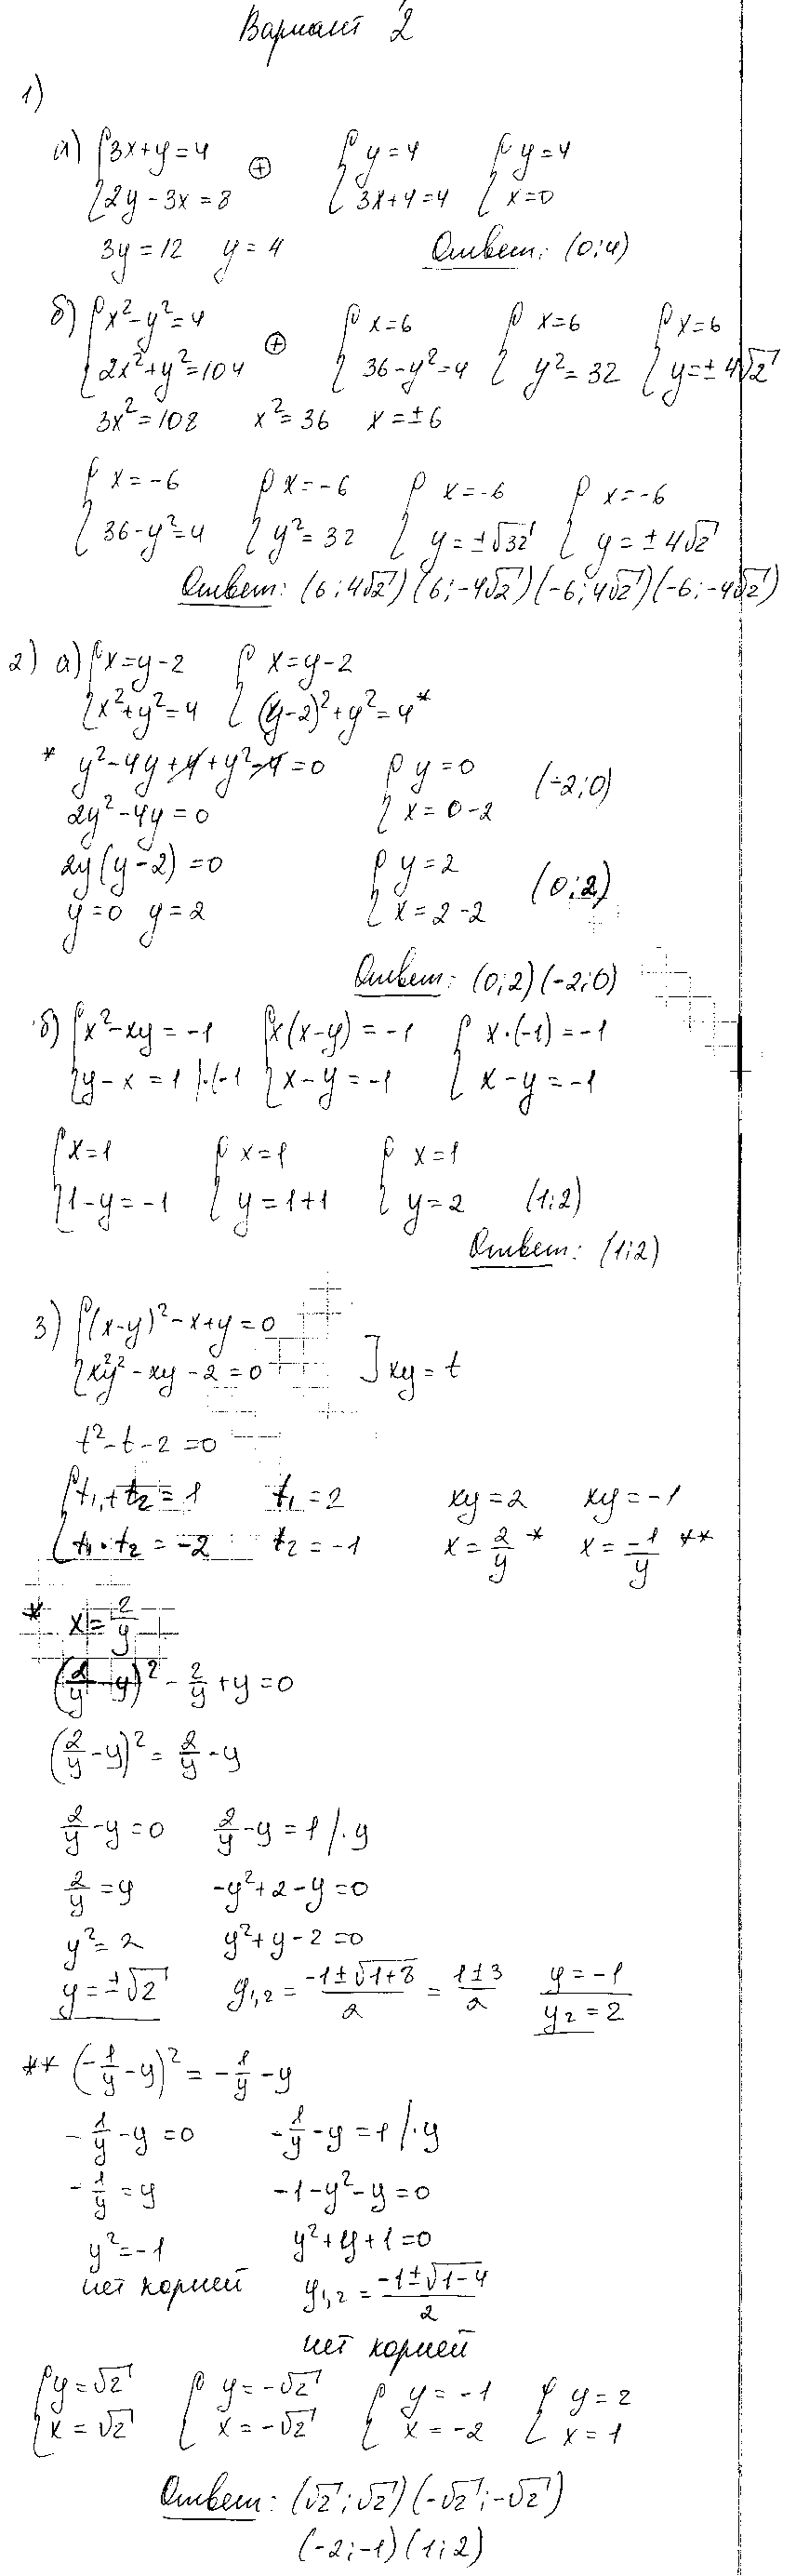 Вариант 2
1)
а) {3x+y=4 ⊕ {y=4 {y=4
{2y-3x=8 {3x+4=4 {x=0
3y=12 y=4 Ответ: (0;4)
б) {x²-y²=4 ⊕ {x=6 {x=6 {x=6
{2x²+y²=104 {36-y²=4 {y²=32 {y=±4√2
3x²=108 x²=36 x=±6
{x=-6 {x=-6 {x=-6 {x=-6
{36-y²=4 {y²=32 {y=±√32 {y=±4√2
Ответ: (6;4√2)(6;-4√2)(-6;4√2)(-6;-4√2)
2) а) {x=y-2 {x=y-2
{x²+y²=4 {(y-2)²+y²=4*
* y²-4y+4+y²-4=0 {y=0 (-2;0)
2y²-4y=0 {x=0-2
2y(y-2)=0 {y=2 (0;2)
y=0 y=2 {x=2-2
Ответ: (0;2)(-2;0)
б) {x²-xy=-1 {x(x-y)=-1 {x·(-1)=-1
{y-x=1 |·(-1 {x-y=-1 {x-y=-1
{x=1 {x=1 {x=1
{1-y=-1 {y=1+1 {y=2 (1;2)
Ответ: (1;2)
3) {(x-y)²-x+y=0
{x²y²-xy-2=0 ] xy=t
t²-t-2=0
{t₁+t₂=1 t₁=2 xy=2 xy=-1
{t₁·t₂=-2 t₂=-1 x=2/y * x=-1/y **
* x=2/y
(2/y-y)²-2/y+y=0
(2/y-y)²=2/y-y
2/y-y=0 2/y-y=1 /·y
2/y=y -y²+2-y=0
y²=2 y²+y-2=0
y=±√2 y₁,₂=(-1±√1+8)/2=(1±3)/2 y=-1
y₂=2
** (-1/y-y)²=-1/y-y
-1/y-y=0 -1/y-y=1 /·y
-1/y=y -1-y²-y=0
y²=-1 y²+y+1=0
нет корней y₁,₂=(-1±√1-4)/2
нет корней
{y=√2 {y=-√2 {y=-1 {y=2
{x=√2 {x=-√2 {x=-2 {x=1
Ответ: (√2;√2)(-√2;-√2)
(-2;-1)(1;2)